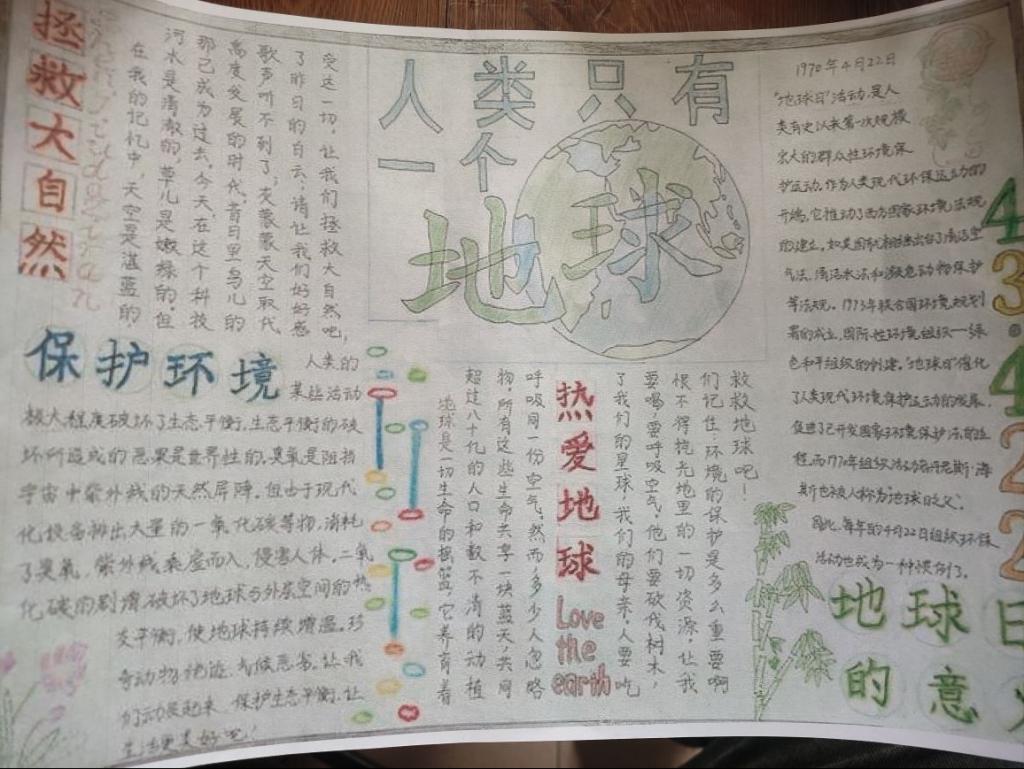 人类只有
一个
地球
拯救大自然
在我的记忆中，天空是湛蓝的
河水是清澈的，草儿是嫩绿的。但
那已成为过去。今天，在这个科技
高度发展的时代，昔日里鸟儿的
歌声听不到了；灰蒙蒙天空取代
了昨日的白云；请让我们好好感
受这一切，让我们拯救大自然吧，
保护环境
人类的
某些活动
极大程度破坏了生态平衡，生态平衡的破
坏所造成的恶果是世界性的。臭氧是阻挡
宇宙中紫外线的天然屏障。但由于现代
化设备排出大量的一氧化碳等物，消耗
了臭氧，紫外线乘虚而入，侵害人体。二氧
化碳的剧增，破坏了地球与外层空间的热
交平衡，使地球持续增温。珍
奇动物绝迹，气候恶劣。让我
们动员起来，保护生态平衡，让
生活更美好吧！
热爱地球
Love
the
earth
救救地球吧！
们记住：环境的保护是多么重要啊
恨不得挖光地里的一切资源，让我
要喝，要呼吸空气，他们要砍伐树木，
了我们的星球，我们的母亲，人要吃
呼吸同一份空气。然而多多少人忽略
物，所有这些生命共享一块蓝天，共同
超过八十亿的人口和数不清的动植
地球是一切生命的摇篮，它养育着
1970年4月22日
"地球日"活动，是人
类有史以来第一次规模
宏大的群众性环境保
护运动。作为人类现代环保运动的
开端，它推动了西方国家环境法规
的建立。如美国就相继出台了清洁空
气法、清洁水法和濒危动物保护
等法规。1973年联合国环境规划
署的成立，国际性环境组织一绿
色和平组织的创建，"地球日"催化
了人类现代环境保护运动的发展，
促进了已开发国家环境保护法的
程。而1970年组织活动的丹尼斯·海
斯也被人称为"地球日之父"。
因此，每年的4月22日组织环保
活动也成为一种惯例了。
4
3
4
2
2
地球日
的意